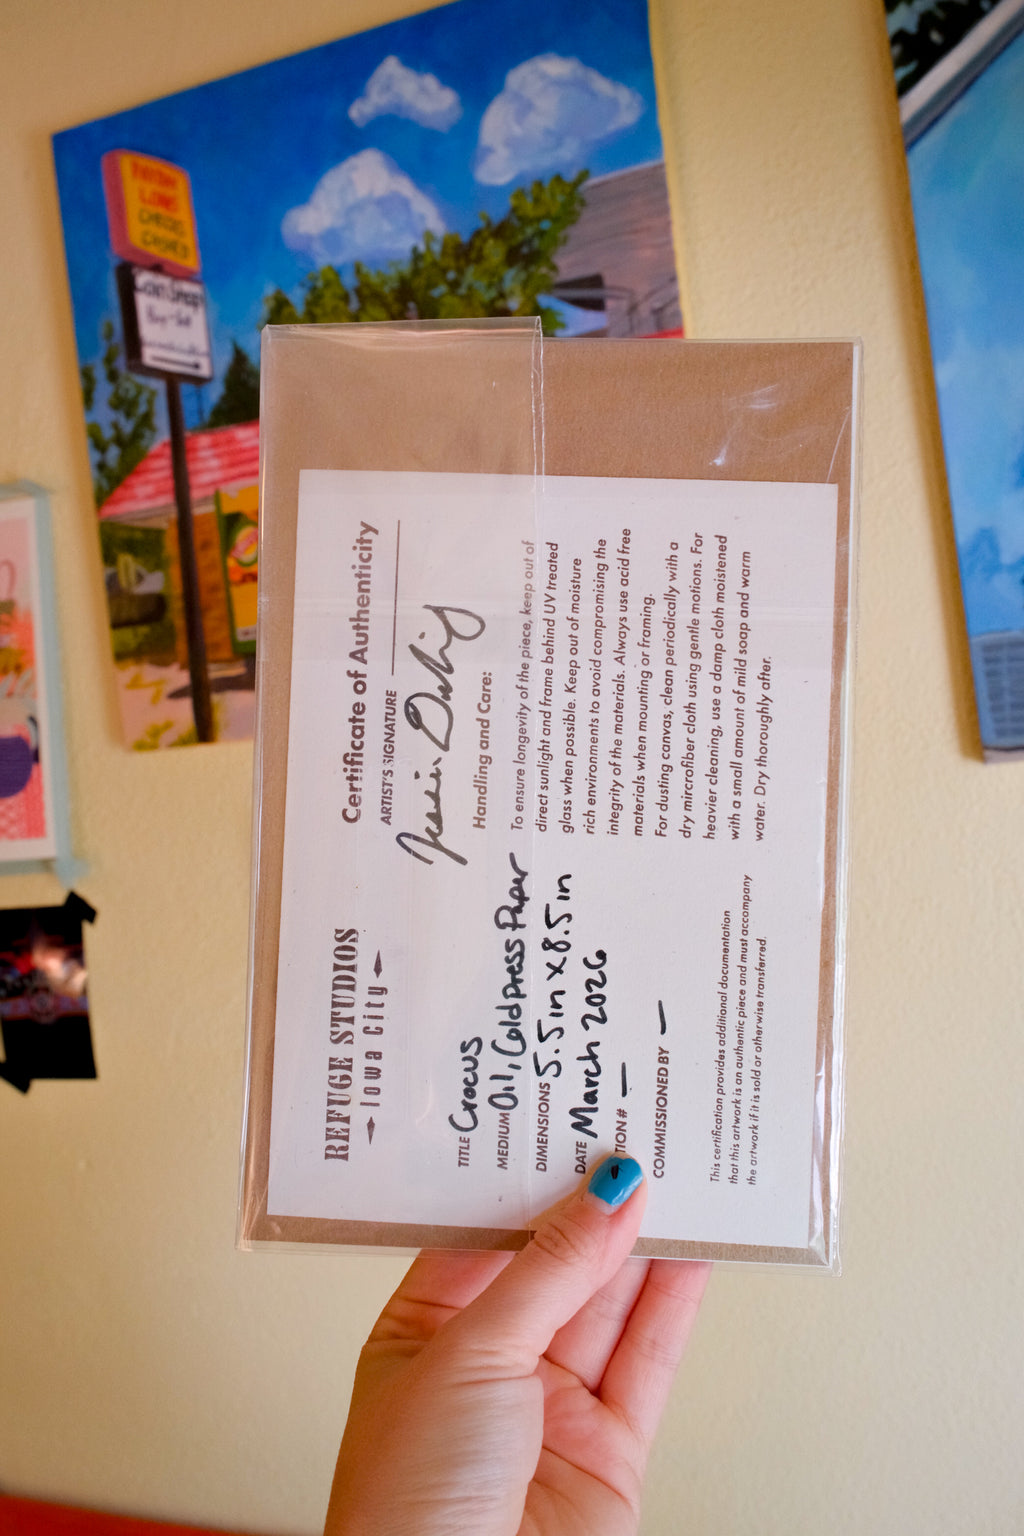 REFUGE STUDIOS
Iowa City
TITLE Crocus
MEDIUM Oil, Cold press Paper
DIMENSIONS 5.5in x 8.5in
DATE March 2026
TION # —
COMMISSIONED BY —
This certification provides additional documentation
that this artwork is an authentic piece and must accompany
the artwork if it is sold or otherwise transferred.
Certificate of Authenticity
ARTIST'S SIGNATURE
Handling and Care:
To ensure longevity of the piece, keep out of
direct sunlight and frame behind UV treated
glass when possible. Keep out of moisture
rich environments to avoid compromising the
integrity of the materials. Always use acid free
materials when mounting or framing.
For dusting canvas, clean periodically with a
dry mircrofiber cloth using gentle motions. For
heavier cleaning, use a damp cloth moistened
with a small amount of mild soap and warm
water. Dry thoroughly after.